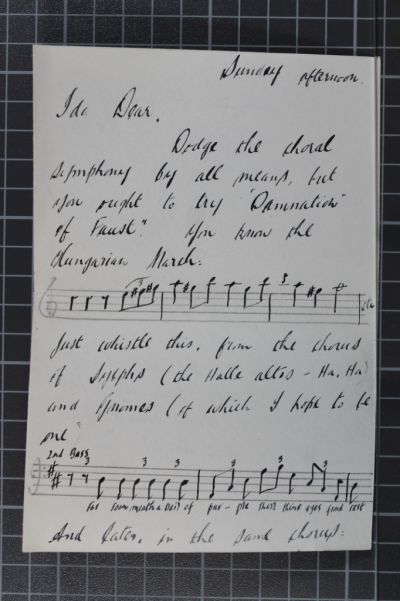 Sunday afternoon.
Ida Dear,
Dodge the choral
symphony by all means, but
you ought to try "Damnation
of Faust". You know the
Hungarian March:
Just whistle this, from the chorus
of Sylphs (the Halle altos - Ha, Ha)
and Gnomes (of which I hope to be
one)
2nd Bass
3 3 3 3 3 3
For soon, neath a veil of pur-ple shall thine eyes find rest
And later, in the same chorus: